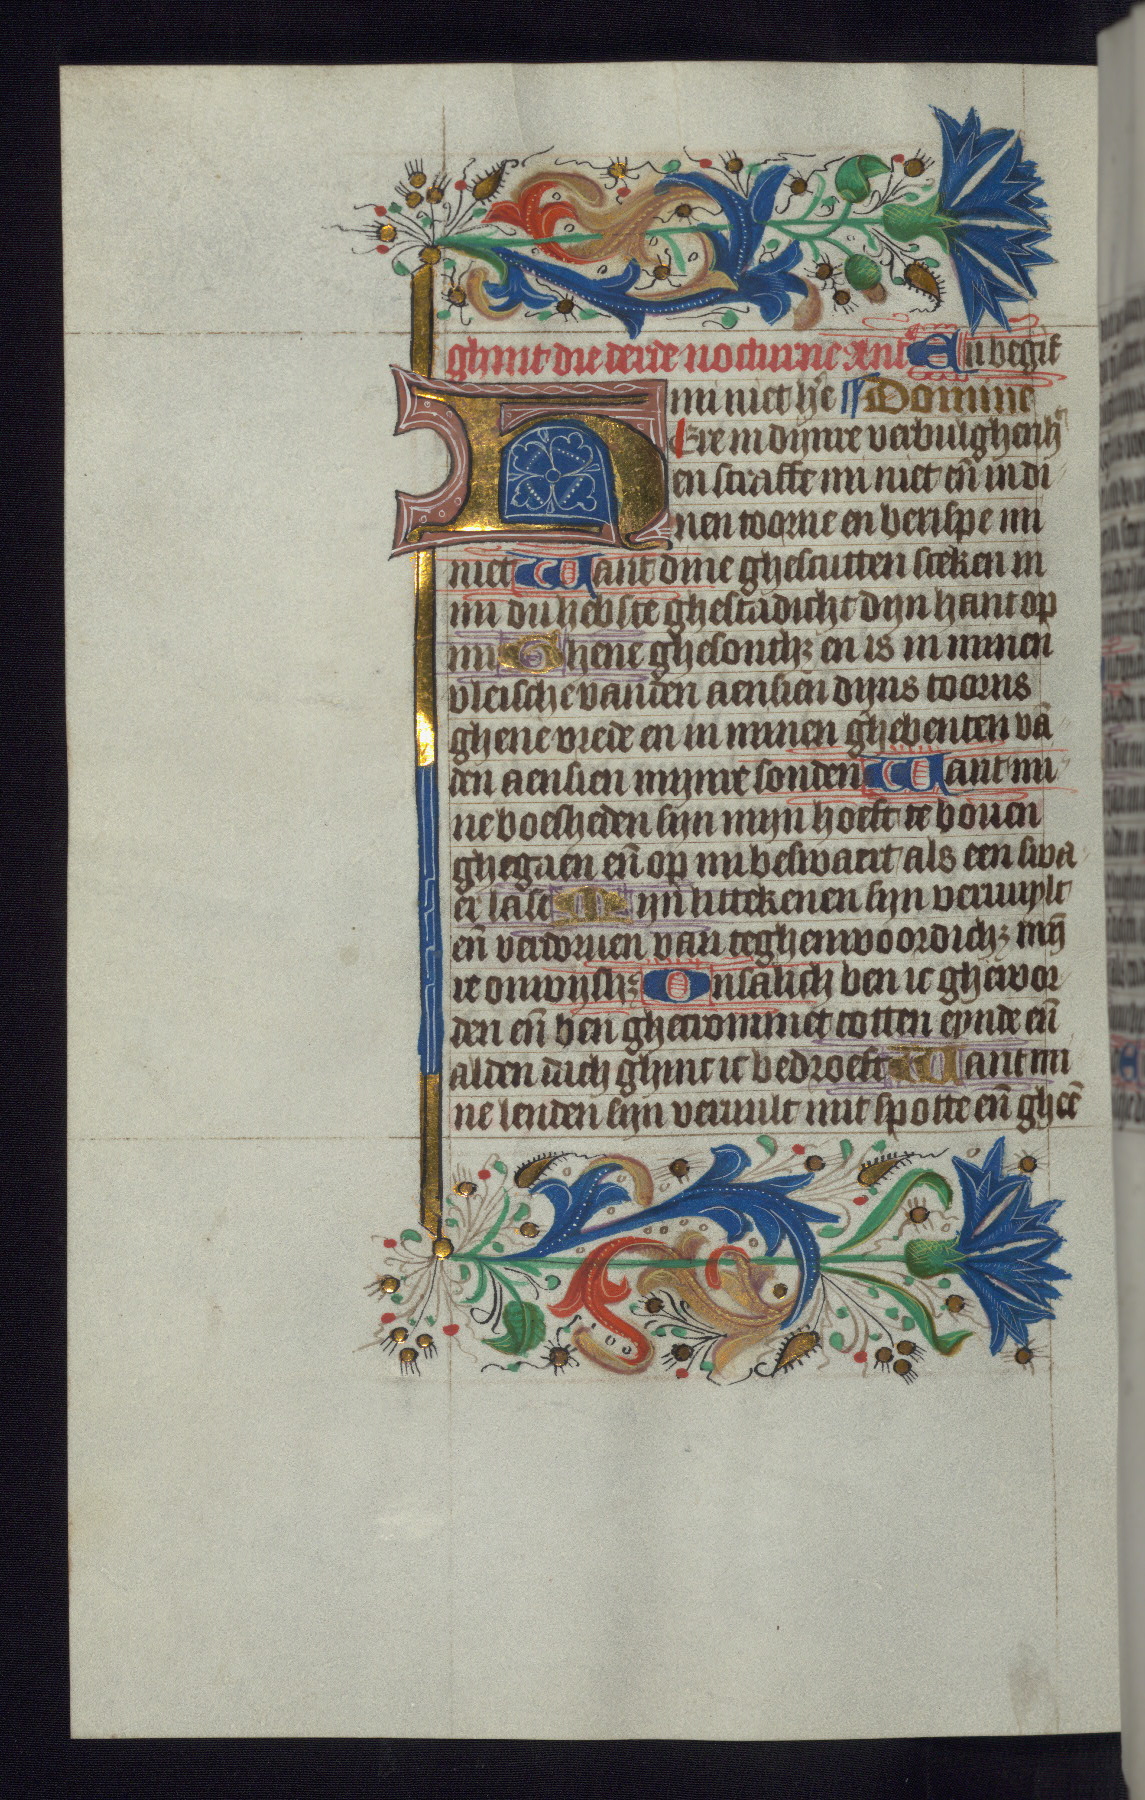 ghint die derde nocturne Ant An begif
mi niet he͛e Domine
Ere in dijnre verbulghenh͛
en straffe mi niet en̄ in di
nen toorne en berispe mi
niet Want dine ghescutten steken in
mi du hebste ghestadicht dijn hant op
mi Ghene ghesonthꝫ en is in minen
vleische vanden aensien dijns toorns
ghene vrede en in minen ghebenten vā
den aensien mijnre sonden Want mi
ne boesheden sijn mijn hoeft te bouen
ghegaen en̄ op mi beswaert als een swa
er last Mijn litteken en sijn veruuylt
en̄ verdoruen van teghenwoordichꝫ mij̄
re onwijshꝫ Onsalich ben ic ghewor
den en̄ ben ghecrommet totten eynde en̄
alden dach ghinc ic bedroeft Want mi
ne lenden sijn veruult mit spotte en̄ gheē